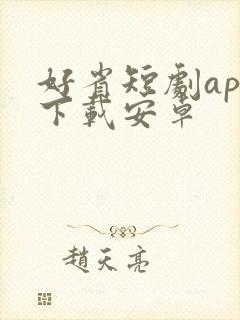 好省短劇ap
下載安卓
趙天亮